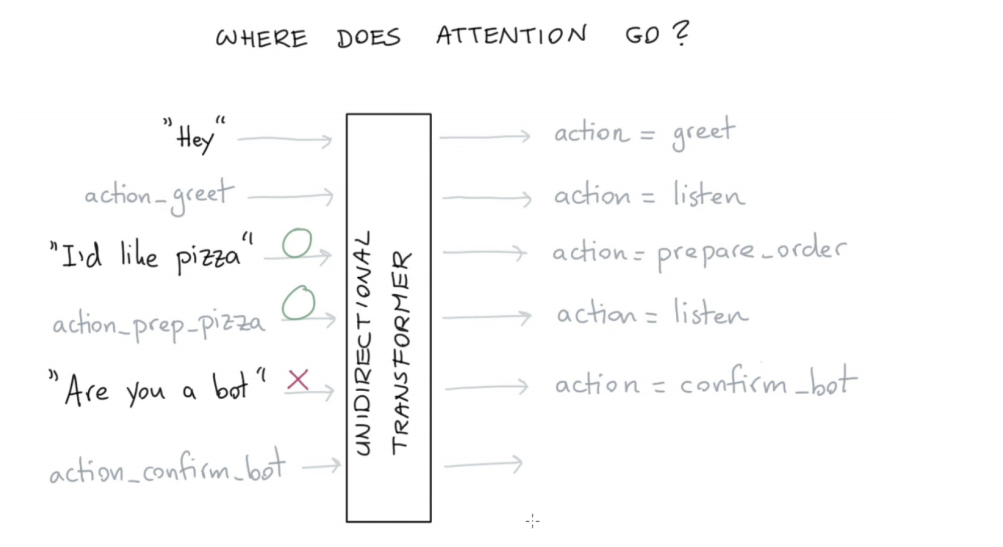 WHERE DOES ATTENTION GO?
"Hey"
action = greet
action_greet
action = listen
"I'd like pizza"
action = prepare_order
action_prep_pizza
action = listen
"Are you a bot"
action = confirm_bot
action_confirm_bot
UNIDIRECTIONAL
TRANSFORMER